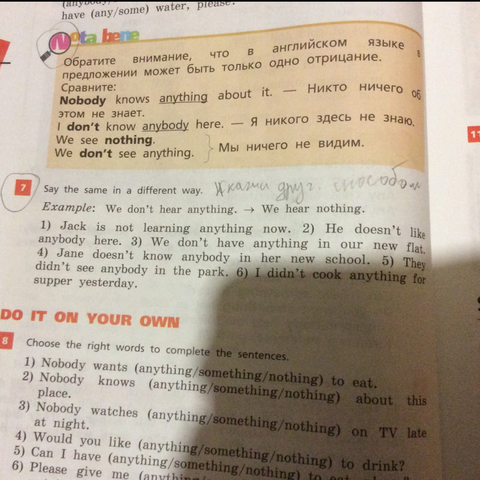 have (any/some) water, please.
Nota bene
Обратите внимание, что в английском языке в
предложении может быть только одно отрицание.
Сравните:
Nobody knows anything about it. — Никто ничего об
этом не знает.
I don't know anybody here. — Я никого здесь не знаю.
We see nothing.
We don't see anything.
Мы ничего не видим.
7 Say the same in a different way. Скажи друг. способом
Example: We don't hear anything. → We hear nothing.
1) Jack is not learning anything now. 2) He doesn't like
anybody here. 3) We don't have anything in our new flat.
4) Jane doesn't know anybody in her new school. 5) They
didn't see anybody in the park. 6) I didn't cook anything for
supper yesterday.
DO IT ON YOUR OWN
8 Choose the right words to complete the sentences.
1) Nobody wants (anything/something/nothing) to eat.
2) Nobody knows (anything/something/nothing) about this
place.
3) Nobody watches (anything/something/nothing) on TV late
at night.
4) Would you like (anything/something/nothing) to drink?
5) Can I have (anything/something/nothing) to
6) Please give me (anything/something/nothing)
11